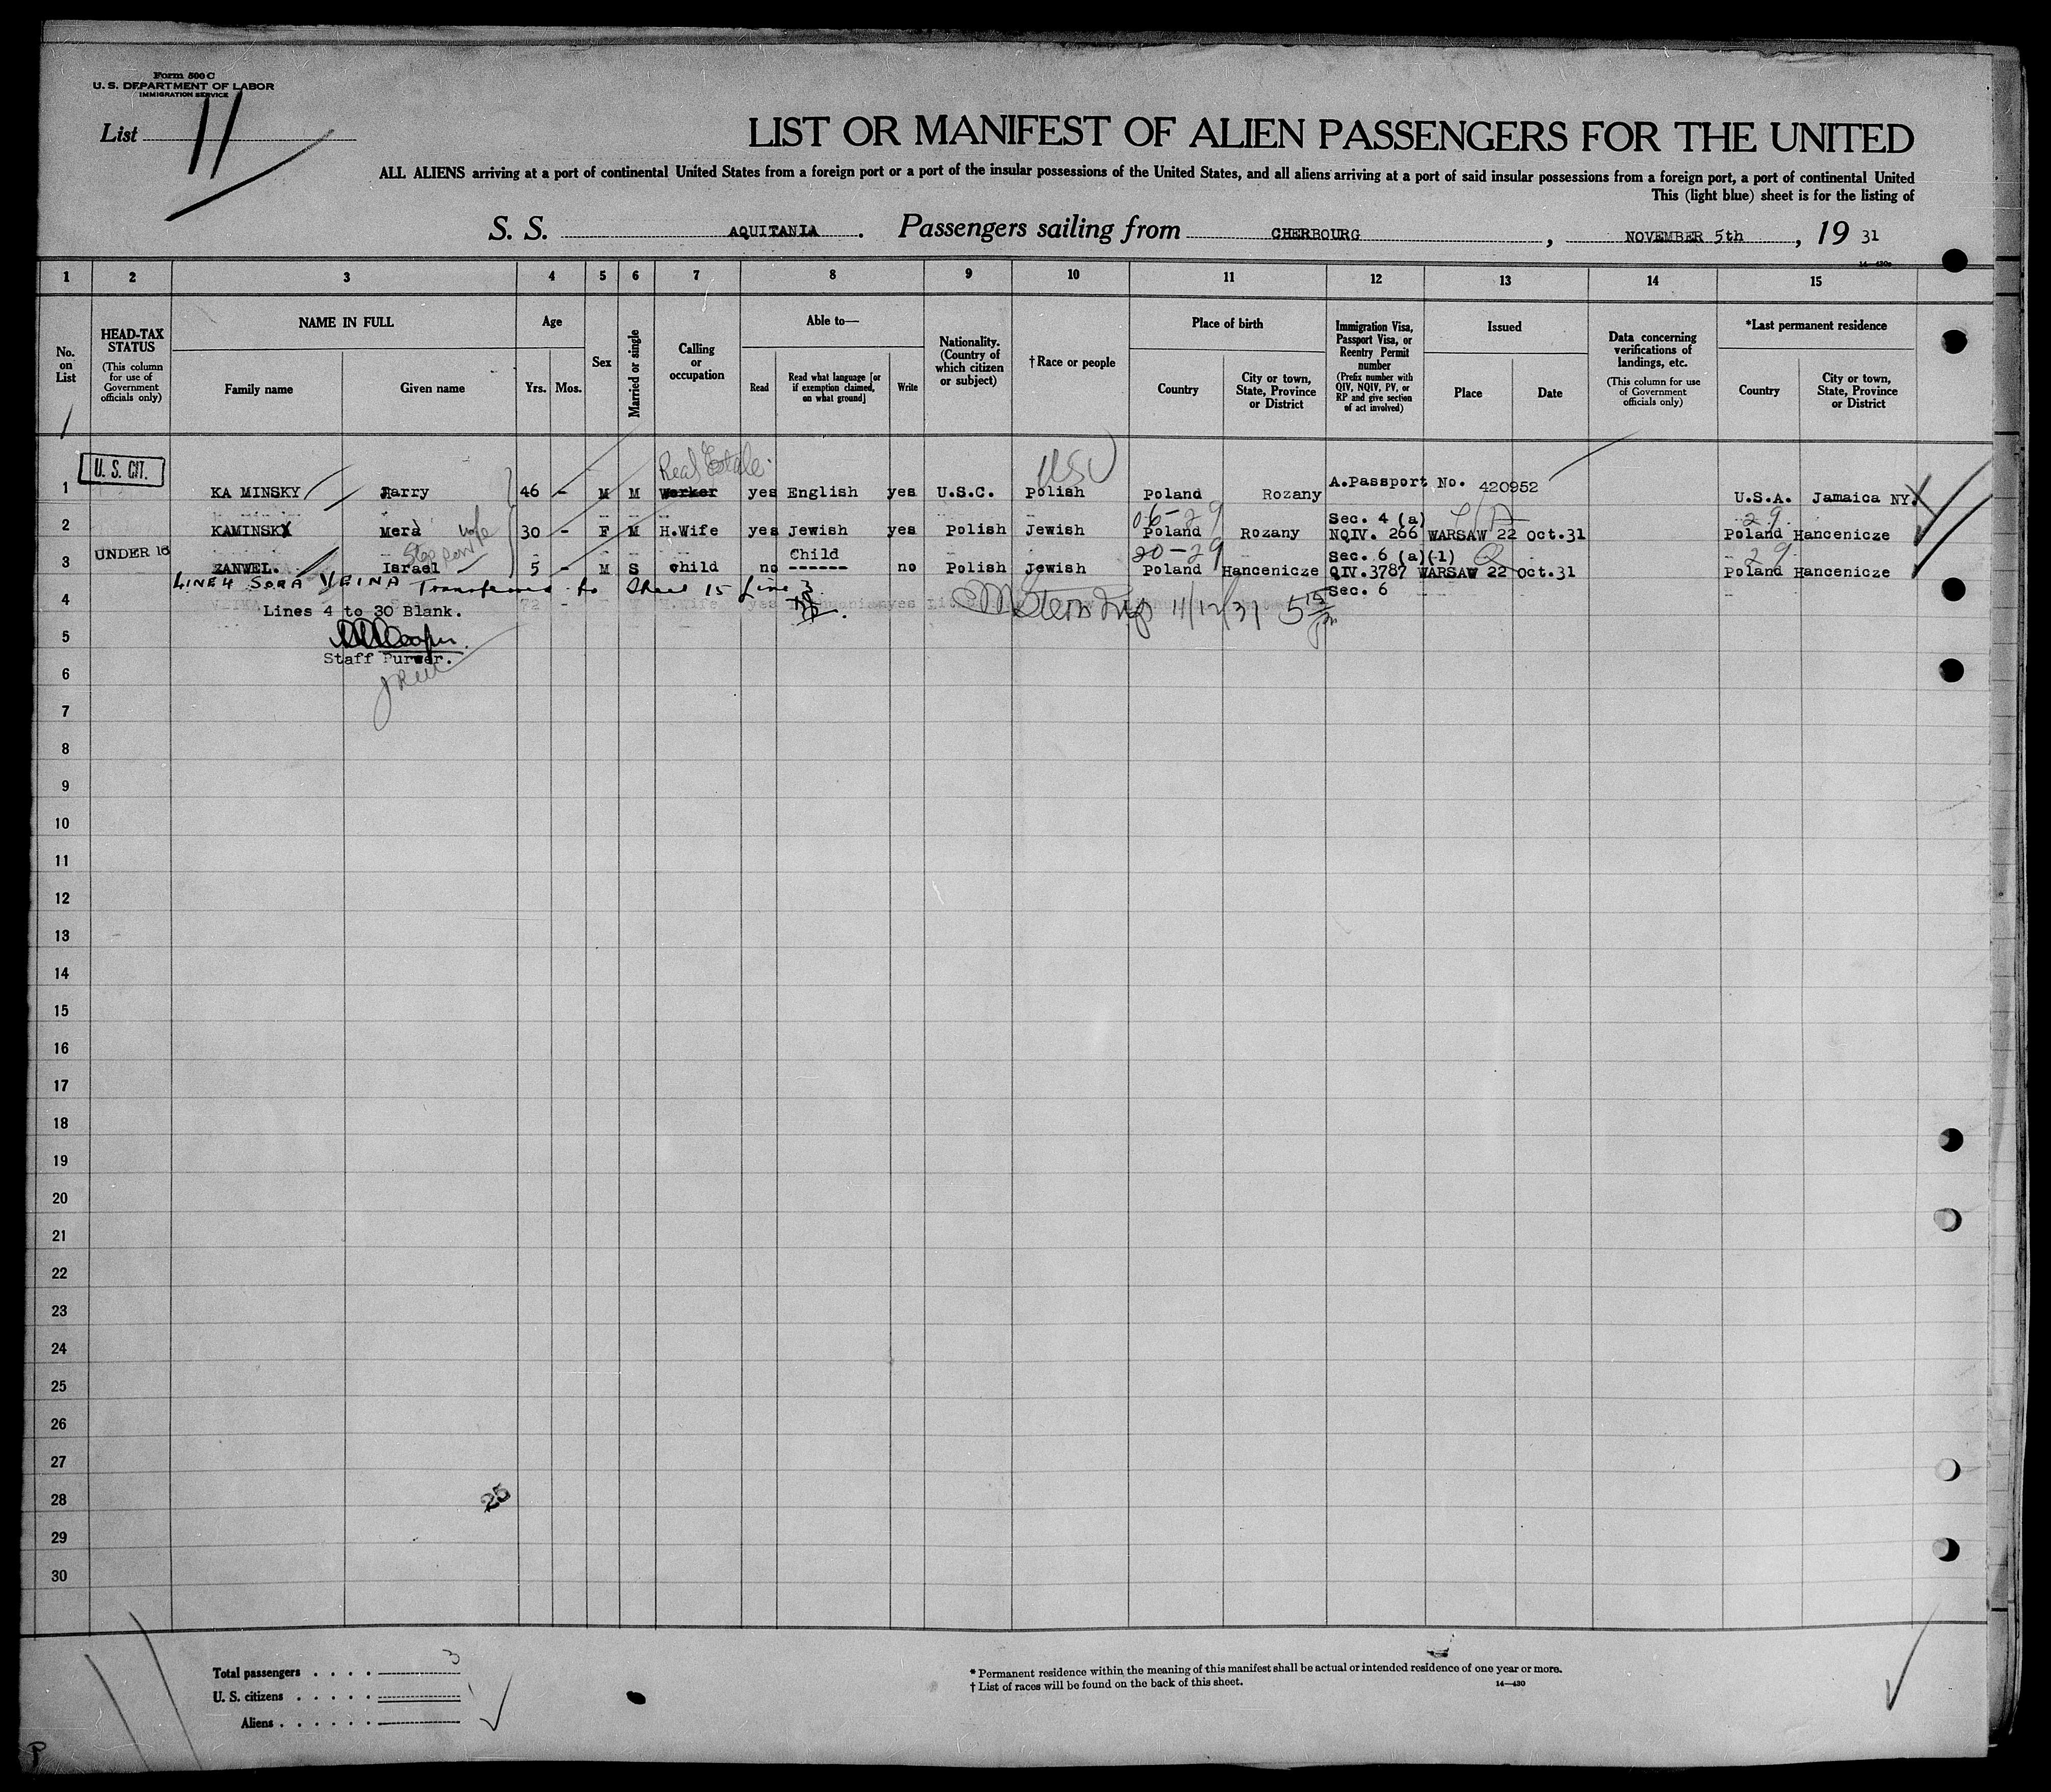 Form 500 C
U. S. DEPARTMENT OF LABOR
IMMIGRATION SERVICE
List 11
LIST OR MANIFEST OF ALIEN PASSENGERS FOR THE UNITED
ALL ALIENS arriving at a port of continental United States from a foreign port or a port of the insular possessions of the United States, and all aliens arriving at a port of said insular possessions from a foreign port, a port of continental United
This (light blue) sheet is for the listing of
S. S. AQUITANIA. Passengers sailing from CHERBOURG, NOVEMBER 5th, 19 31
1 2 3 4 5 6 7 8 9 10 11 12 13 14 15
No. on List
HEAD-TAX STATUS
(This column for use of Government officials only)
NAME IN FULL
Family name
Given name
Age
Yrs.
Mos.
Sex
Married or single
Calling or occupation
Able to—
Read
Read what language [or if exemption claimed, on what ground]
Write
Nationality. (Country of which citizen or subject)
† Race or people
Place of birth
Country
City or town, State, Province or District
Immigration Visa, Passport Visa, or Reentry Permit number
(Prefix number with QIV, NQIV, PV, or RP and give section of act involved)
Issued
Place
Date
Data concerning verifications of landings, etc.
(This column for use of Government officials only)
*Last permanent residence
Country
City or town, State, Province or District
U. S. CIT.
Real Estate
USC
1 KA MINSKY Harry 46 - M M Worker yes English yes U.S.C. Polish Poland Rozany A.Passport No. 420952 U.S.A. Jamaica NY.
06-29 Sec. 4 (a) 29
2 KAMINSKY Mera wife 30 - F M H.Wife yes Jewish yes Polish Jewish Poland Rozany NQIV. 266 WARSAW 22 oct.31 Poland Hancenicze
UNDER 16 Child 20-29 Sec. 6 (a)(1) 29
3 ZANWEL. Israel 5 - M S child no ------ no Polish Jewish Poland Hancenicze QIV.3787 WARSAW 22 oct.31 Poland Hancenicze
LINE 4 SORA VEINA Transferred to Sheet 15 Line 3
Sec. 6
4 Lines 4 to 30 Blank.
Stern Insp 11/12/31 5
5
Staff Purser.
6
7
8
9
10
11
12
13
14
15
16
17
18
19
20
21
22
23
24
25
26
27
28
25
29
30
Total passengers . . . . 3
U. S. citizens . . . . .
Aliens . . . . . .
* Permanent residence within the meaning of this manifest shall be actual or intended residence of one year or more.
† List of races will be found on the back of this sheet.
14—430
P